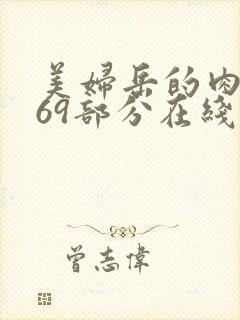 美婦岳的肉
69部分在綫
曾志偉